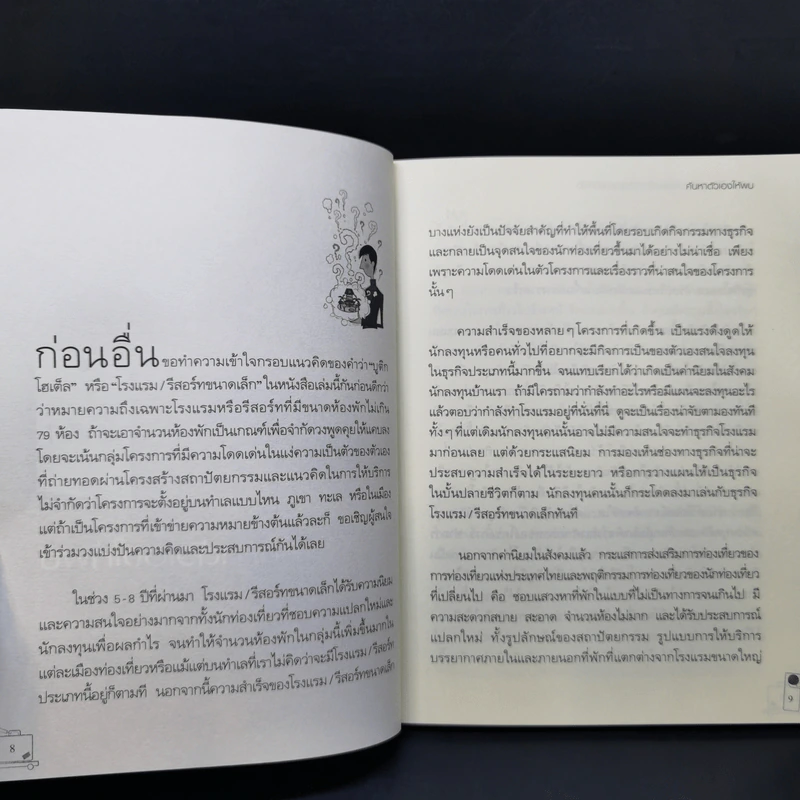 ก่อนอื่น ขอทำความเข้าใจกรอบแนวคิดของคำว่า“บูติก
โฮเต็ล” หรือ “โรงแรม/รีสอร์ทขนาดเล็ก”ในหนังสือเล่มนี้กันก่อนดีกว่า
ว่าหมายความถึงเฉพาะโรงแรมหรือรีสอร์ทที่มีขนาดห้องพักไม่เกิน
79 ห้อง ถ้าจะเอาจำนวนห้องพักเป็นเกณฑ์เพื่อจำกัดวงพูดคุยให้แคบลง
โดยจะเน้นกลุ่มโครงการที่มีความโดดเด่นในแง่ความเป็นตัวของตัวเอง
ที่ถ่ายทอดผ่านโครงสร้างสถาปัตยกรรมและแนวคิดในการให้บริการ
ไม่จำกัดว่าโครงการจะตั้งอยู่บนทำเลแบบไหน ภูเขา ทะเล หรือในเมือง
แต่ถ้าเป็นโครงการที่เข้าข่ายความหมายข้างต้นแล้วละก็ ขอเชิญผู้สนใจ
เข้าร่วมวงแบ่งปันความคิดและประสบการณ์กันได้เลย
ในช่วง 5-8 ปีที่ผ่านมา โรงแรม/รีสอร์ทขนาดเล็กได้รับความนิยม
และความสนใจอย่างมากจากทั้งนักท่องเที่ยวที่ชอบความแปลกใหม่และ
นักลงทุนเพื่อผลกำไร จนทำให้จำนวนห้องพักในกลุ่มนี้เพิ่มขึ้นมากใน
แต่ละเมืองท่องเที่ยวหรือแม้แต่บนทำเลที่เราไม่คิดว่าจะมีโรงแรม/รีสอร์ท
ประเภทนี้อยู่ก็ตามที นอกจากนี้ความสำเร็จของโรงแรม/รีสอร์ทขนาดเล็ก
8
ค้นหาตัวเองให้พบ
บางแห่งยังเป็นปัจจัยสำคัญที่ทำให้พื้นที่โดยรอบเกิดกิจกรรมทางธุรกิจ
และกลายเป็นจุดสนใจของนักท่องเที่ยวขึ้นมาได้อย่างไม่น่าเชื่อ เพียง
เพราะความโดดเด่นในตัวโครงการและเรื่องราวที่น่าสนใจของโครงการ
นั้นๆ
ความสำเร็จของหลายๆโครงการที่เกิดขึ้น เป็นแรงดึงดูดให้
นักลงทุนหรือคนทั่วไปที่อยากจะมีกิจการเป็นของตัวเองสนใจลงทุน
ในธุรกิจประเภทนี้มากขึ้น จนแทบเรียกได้ว่าเกิดเป็นค่านิยมในสังคม
นักลงทุนบ้านเรา ถ้ามีใครถามว่ากำลังทำอะไรหรือมีแผนจะลงทุนอะไร
แล้วตอบว่ากำลังทำโรงแรมอยู่ที่นั่นที่นี่ ดูจะเป็นเรื่องน่าจับตามองทันที
ทั้งๆที่แต่เดิมนักลงทุนคนนั้นอาจไม่มีความสนใจจะทำธุรกิจโรงแรม
มาก่อนเลย แต่ด้วยกระแสนิยม การมองเห็นช่องทางธุรกิจที่น่าจะ
ประสบความสำเร็จได้ในระยะยาว หรือการวางแผนให้เป็นธุรกิจ
ในบั้นปลายชีวิตก็ตาม นักลงทุนคนนั้นก็กระโดดลงมาเล่นกับธุรกิจ
โรงแรม/รีสอร์ทขนาดเล็กทันที
นอกจากค่านิยมในสังคมแล้ว กระแสการส่งเสริมการท่องเที่ยวของ
การท่องเที่ยวแห่งประเทศไทยและพฤติกรรมการท่องเที่ยวของนักท่องเที่ยว
ที่เปลี่ยนไป คือ ชอบแสวงหาที่พักในแบบที่ไม่เป็นทางการจนเกินไป มี
ความสะดวกสบาย สะอาด จำนวนห้องไม่มาก และได้รับประสบการณ์
แปลกใหม่ ทั้งรูปลักษณ์ของสถาปัตยกรรม รูปแบบการให้บริการ
บรรยากาศภายในและภายนอกที่พักที่แตกต่างจากโรงแรมขนาดใหญ่
9